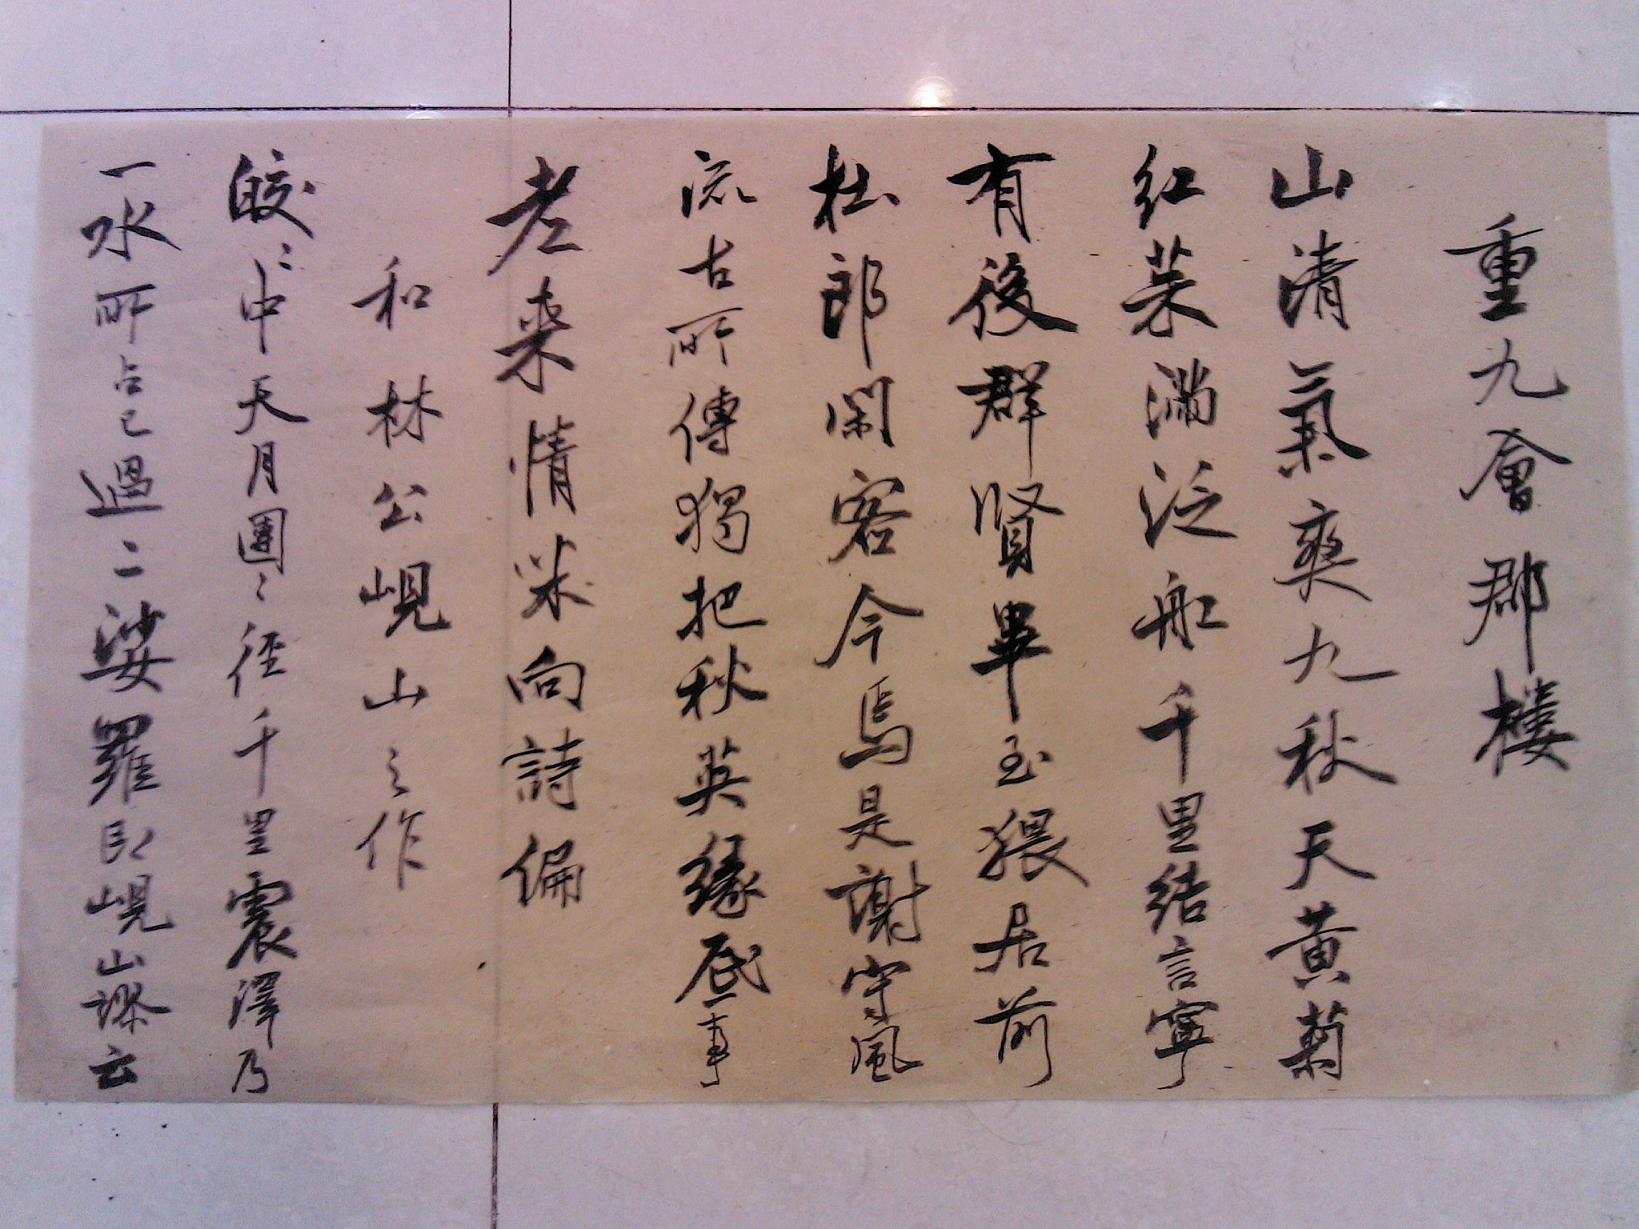 重九會郡樓
山清氣爽九秋天黄菊
紅茱滿泛船千里結言寧
有後群賢畢至猥居前
杜郎閑客今焉是謝守風
流古所傳獨把秋英緣底事
老来情味向詩偏
和林公峴山之作
皎〻中天月團〻徑千里震澤乃
一水所占已過二娑羅即峴山謬云